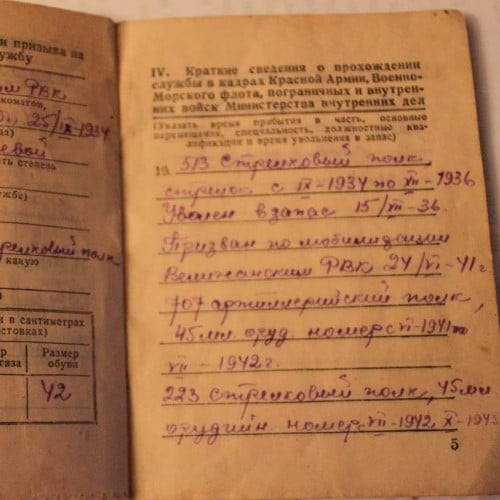 и призыва на
службу
РВК
коматом,
25/IX-1934
евой
ать степень
ужбе)
трелковый полк
какую
и в сантиметрах
стовках)
Размер
обуви
42
IV. Краткие сведения о прохождении
службы в кадрах Красной Армии, Военно-
Морского флота, пограничных и внутрен-
них войск Министерства внутренних дел
(Указать время прибытия в часть, основные
перемещения, специальность, должностные ква-
лификации и время увольнения в запас)
19. 513 Стрелковый полк,
стрелок с IX-1934 по XII-1936
Уволен в запас 15/XII-36.
Призван по мобилизации
Велижанским РВК 24/VI-41 г
707 артиллерийский полк,
45 мл. оруд. номер с VI-1941 по
VII-1942 г.
223 стрелковый полк, 45 мл
орудийн. номер VII-1942 X-1943
5